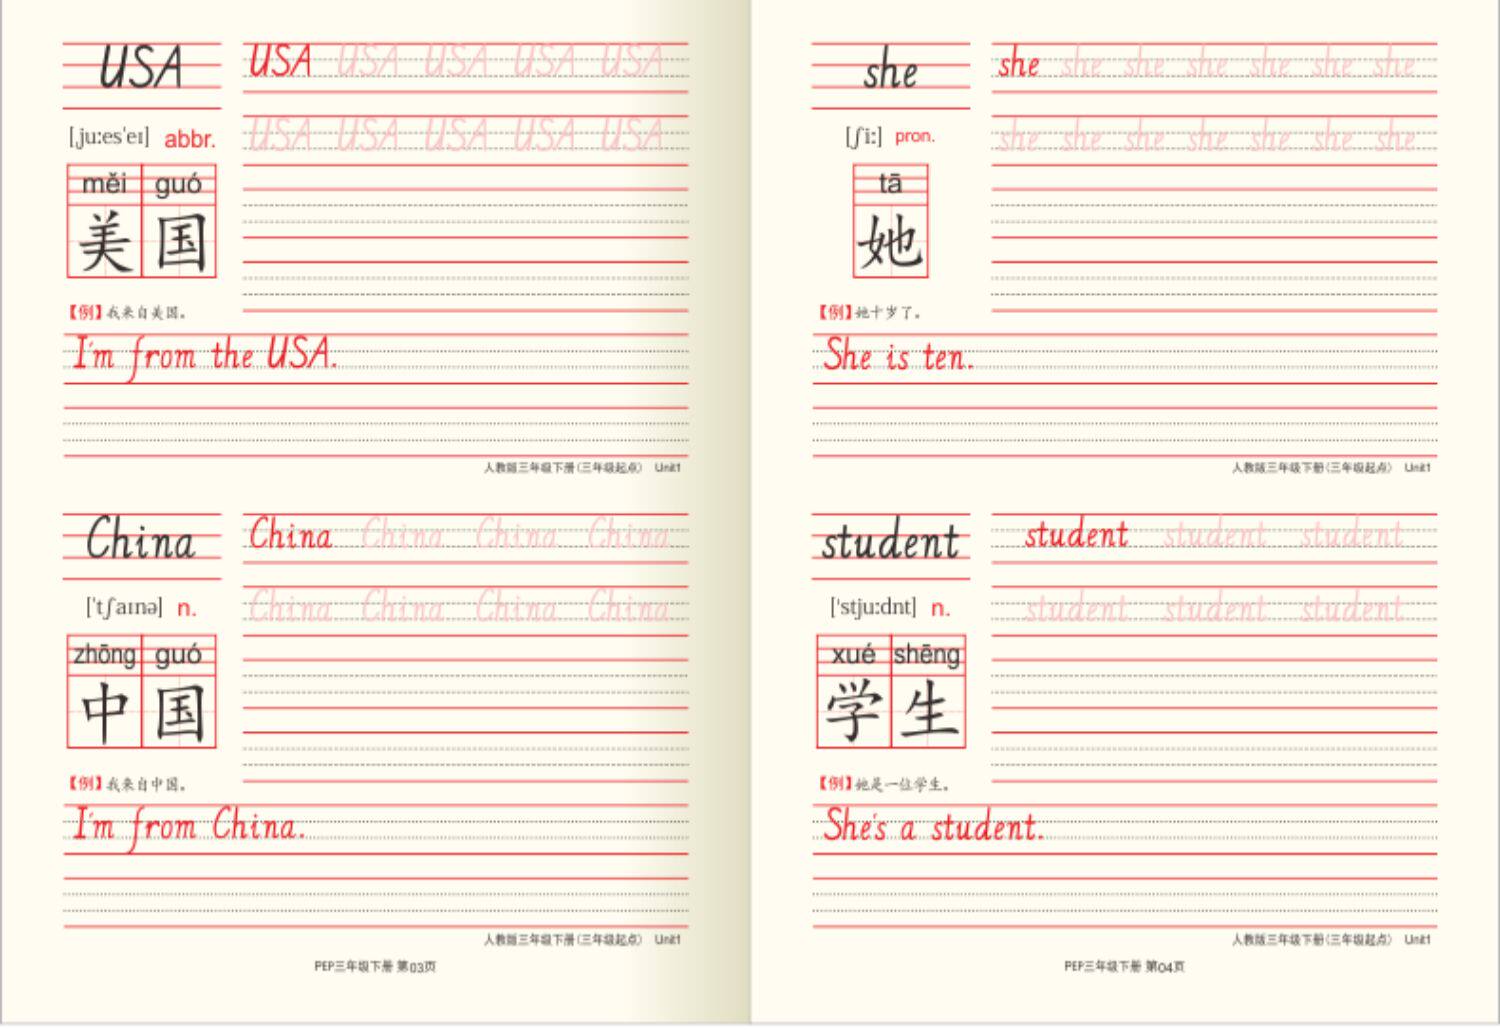 USA
USA USA USA USA USA
[ˌjuːesˈeɪ] abbr.
USA USA USA USA USA
měi guó
美国
【例】我来自美国。
I'm from the USA.
人教版三年级下册(三年级起点) Unit1
China
China China China China
[ˈtʃaɪnə] n.
China China China China
zhōng guó
中国
【例】我来自中国。
I'm from China.
人教版三年级下册(三年级起点) Unit1
PEP三年级下册 第03页
she
she she she she she she she
[ʃiː] pron.
she she she she she she she
tā
她
【例】她十岁了。
She is ten.
人教版三年级下册(三年级起点) Unit1
student
student student student
[ˈstjuːdnt] n.
student student student
xué shēng
学生
【例】她是一位学生。
She's a student.
人教版三年级下册(三年级起点) Unit1
PEP三年级下册 第04页